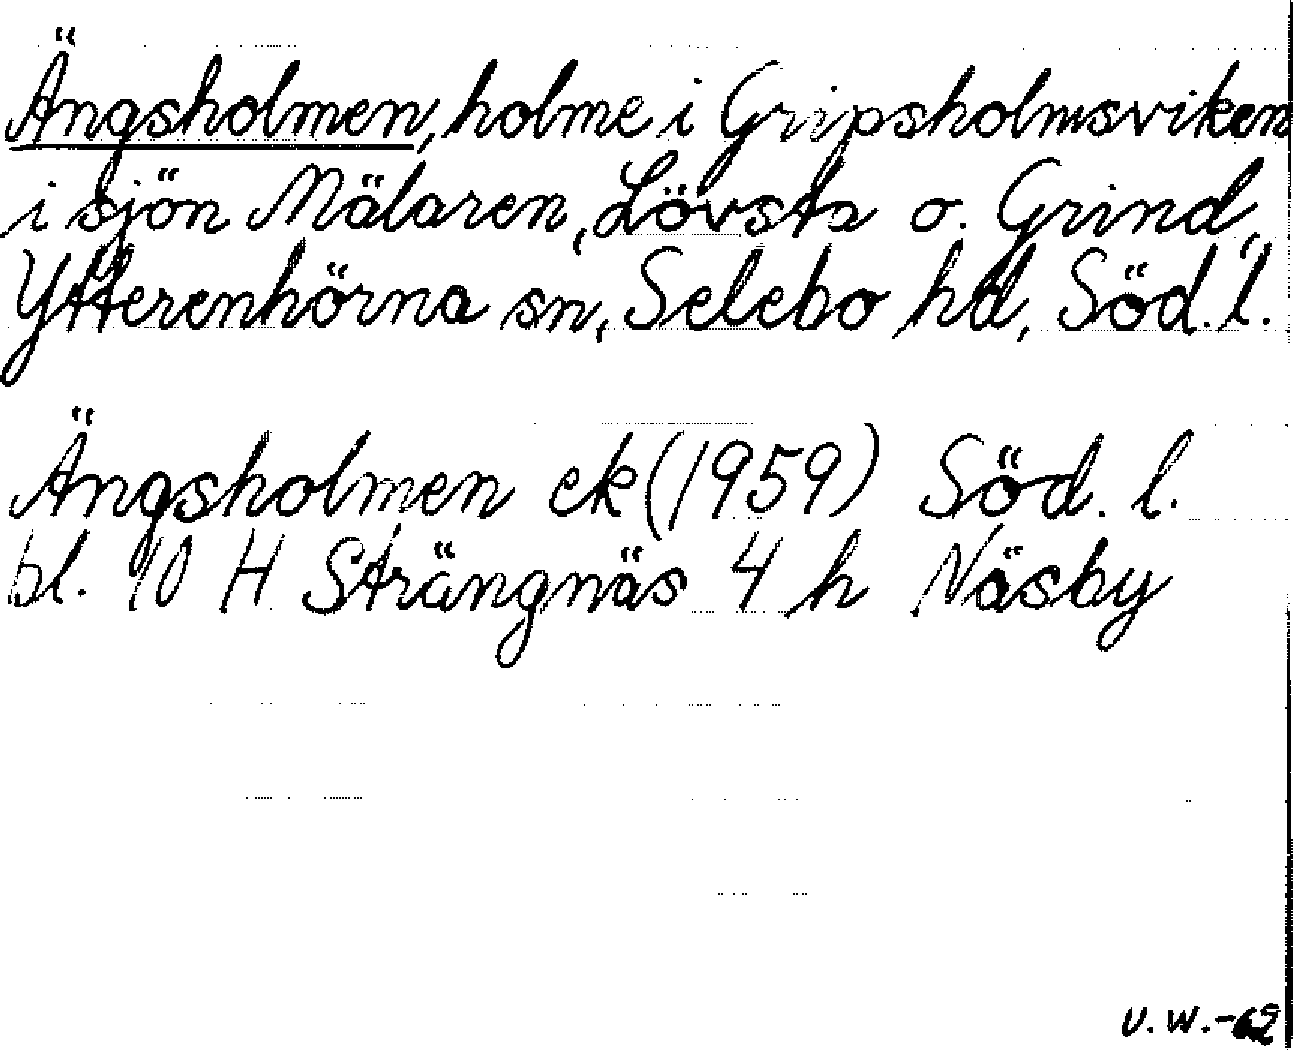 Ängsholmen, holme i Gripsholmsviken
i sjön Mälaren, Lövsta o. Grind,
Ytterenhörna sn, Selebo hd, Söd. l.
Ängsholmen ek (1959) Söd. l.
bl. 10 H Strängnäs 4 h Näsby
U.W.-62